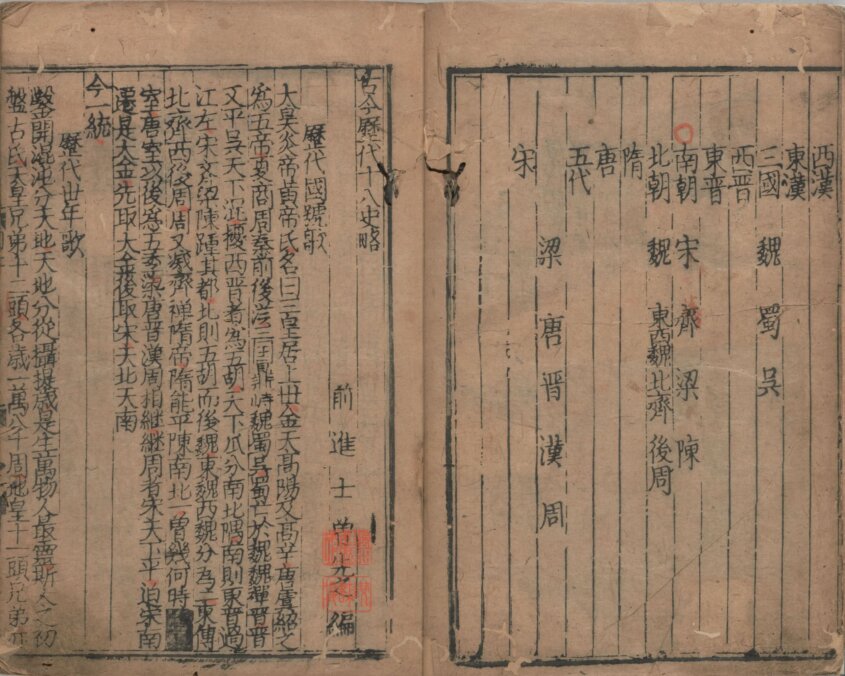 西漢
東漢
三國 魏 蜀 吳
西晉
東晉
南朝 宋 齊 梁 陳
北朝 魏 東西魏 北齊 後周
隋
唐
五代
梁 唐 晉 漢 周
宋
古今歷代十八史略
前進士曾先之編
歷代國號歌
大昊炎帝黃帝氏名曰三皇居上世金天高陽及高辛唐虞紹之
為五帝夏商周秦前後漢三國鼎峙魏蜀吳蜀亡於魏魏禪晉晉
又平吳天下混擾西晉者為五胡天下瓜分南北隅南則東晉過
江左宋齊梁陳踵其都北則五胡而後魏東魏西魏分為二東傳
北齊西後周周又滅齊禪隋帝隋能平陳南北一曾幾何時
室唐室以後為五季梁唐晉漢周相繼繼周者宋天下平迨宋南
遷是大金先取大金後取宋天北天南
今一統
歷代世年歌
盤開混沌分天地天地分從攝提歲是生萬物人最靈斯人之初
盤古氏天皇兄弟十二頭各歲一萬八千周地皇十一頭兄弟